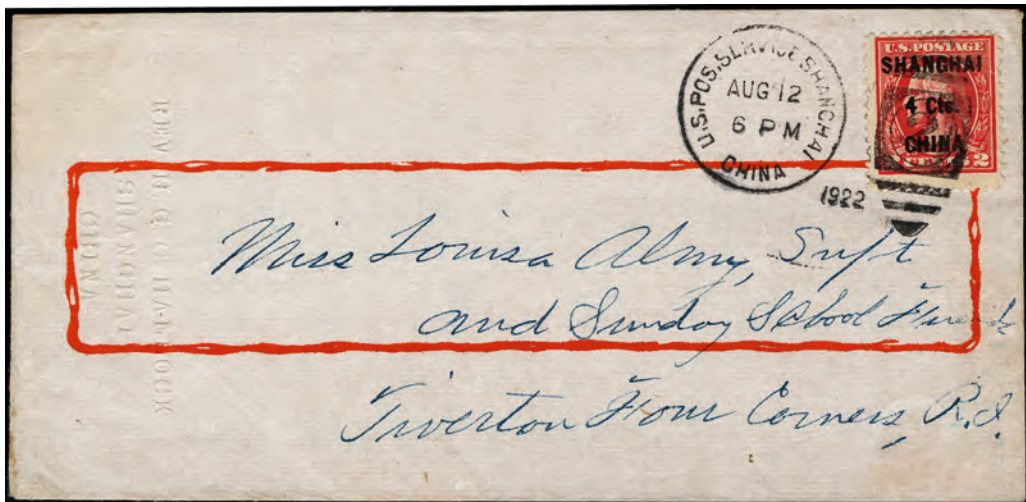 U.S. POS. SERVICE SHANGHAI
CHINA
AUG 12
6 PM
1922
U.S. POSTAGE
SHANGHAI
4 Cts.
CHINA
2
REV. H. G. C.
SHANGHAI
CHINA
Miss Louisa Almy, Supt
and Sunday School Friends
Tiverton Four Corners, R.I.